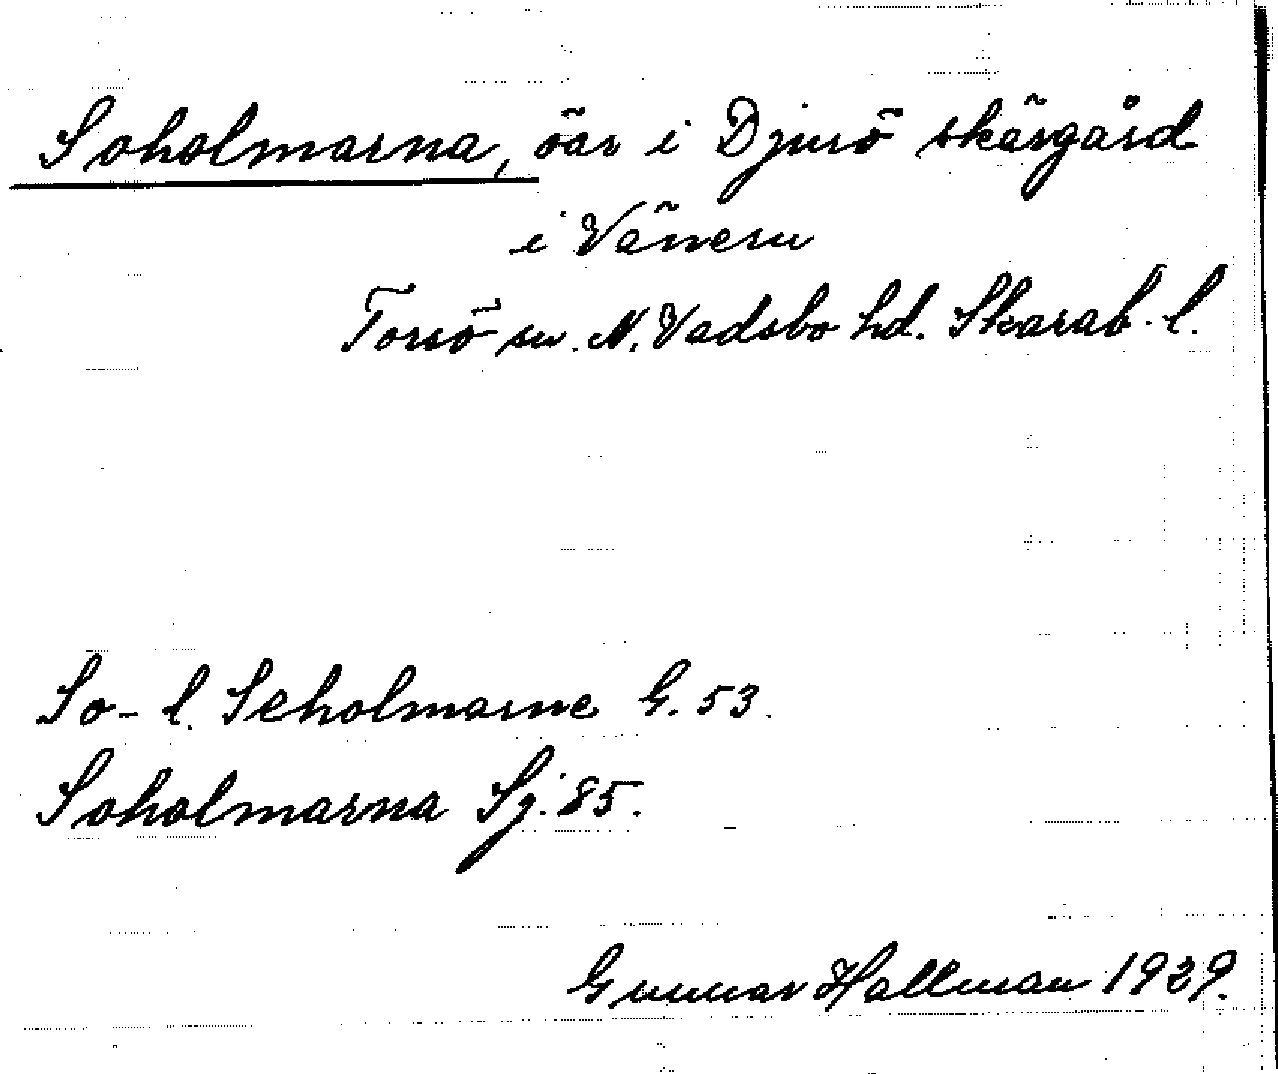 Soholmarna, öar i Djurö skärgård
i Vänern
Torsö sn. N. Vadsbo hd. Skarab. l.
So- l. Seholmarne G. 53.
Soholmarna Sj. 85.
Gunnar Hallman 1929.